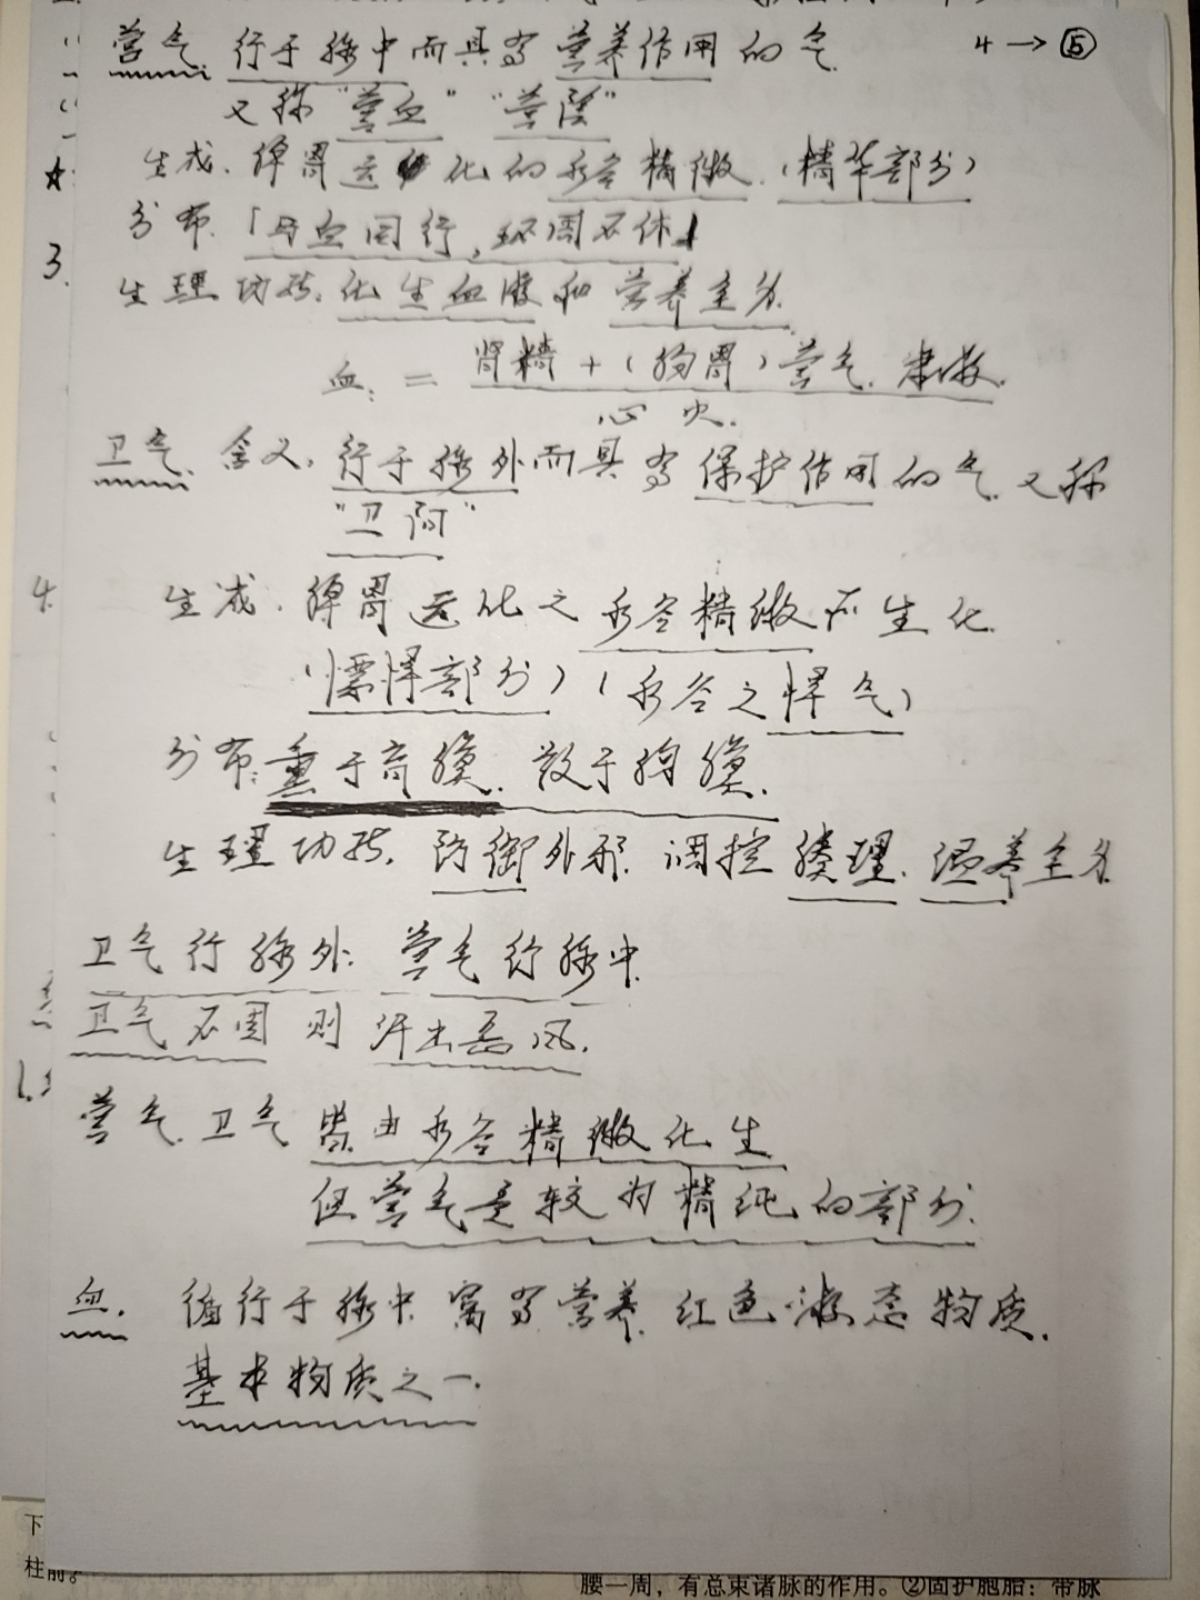 营气. 行于脉中而具有营养作用的气. 4→⑤
又称"营血" "营阴"
生成. 脾胃运化的水谷精微. (精华部分)
分布.「与血同行, 环周不休」
3.
生理功能: 化生血液和营养全身.
血: = 肾精+(脾胃)营气. 津液.
心火.
卫气. 含义, 行于脉外而具有保护作用的气. 又称
"卫阳"
4.
生成. 脾胃运化之水谷精微所生化.
(慓悍部分)(水谷之悍气)
分布: 熏于肓膜. 散于胸膜.
生理功能. 防御外邪. 调控腠理. 温养全身.
卫气行脉外: 营气行脉中.
卫气不固 则 汗出恶风.
营气. 卫气 皆由水谷精微化生
但营气是较为精纯的部分.
血. 循行于脉中. 富有营养. 红色液态物质.
基本物质之一.
下
柱前。
腰一周，有总束诸脉的作用。②固护胞胎：带脉